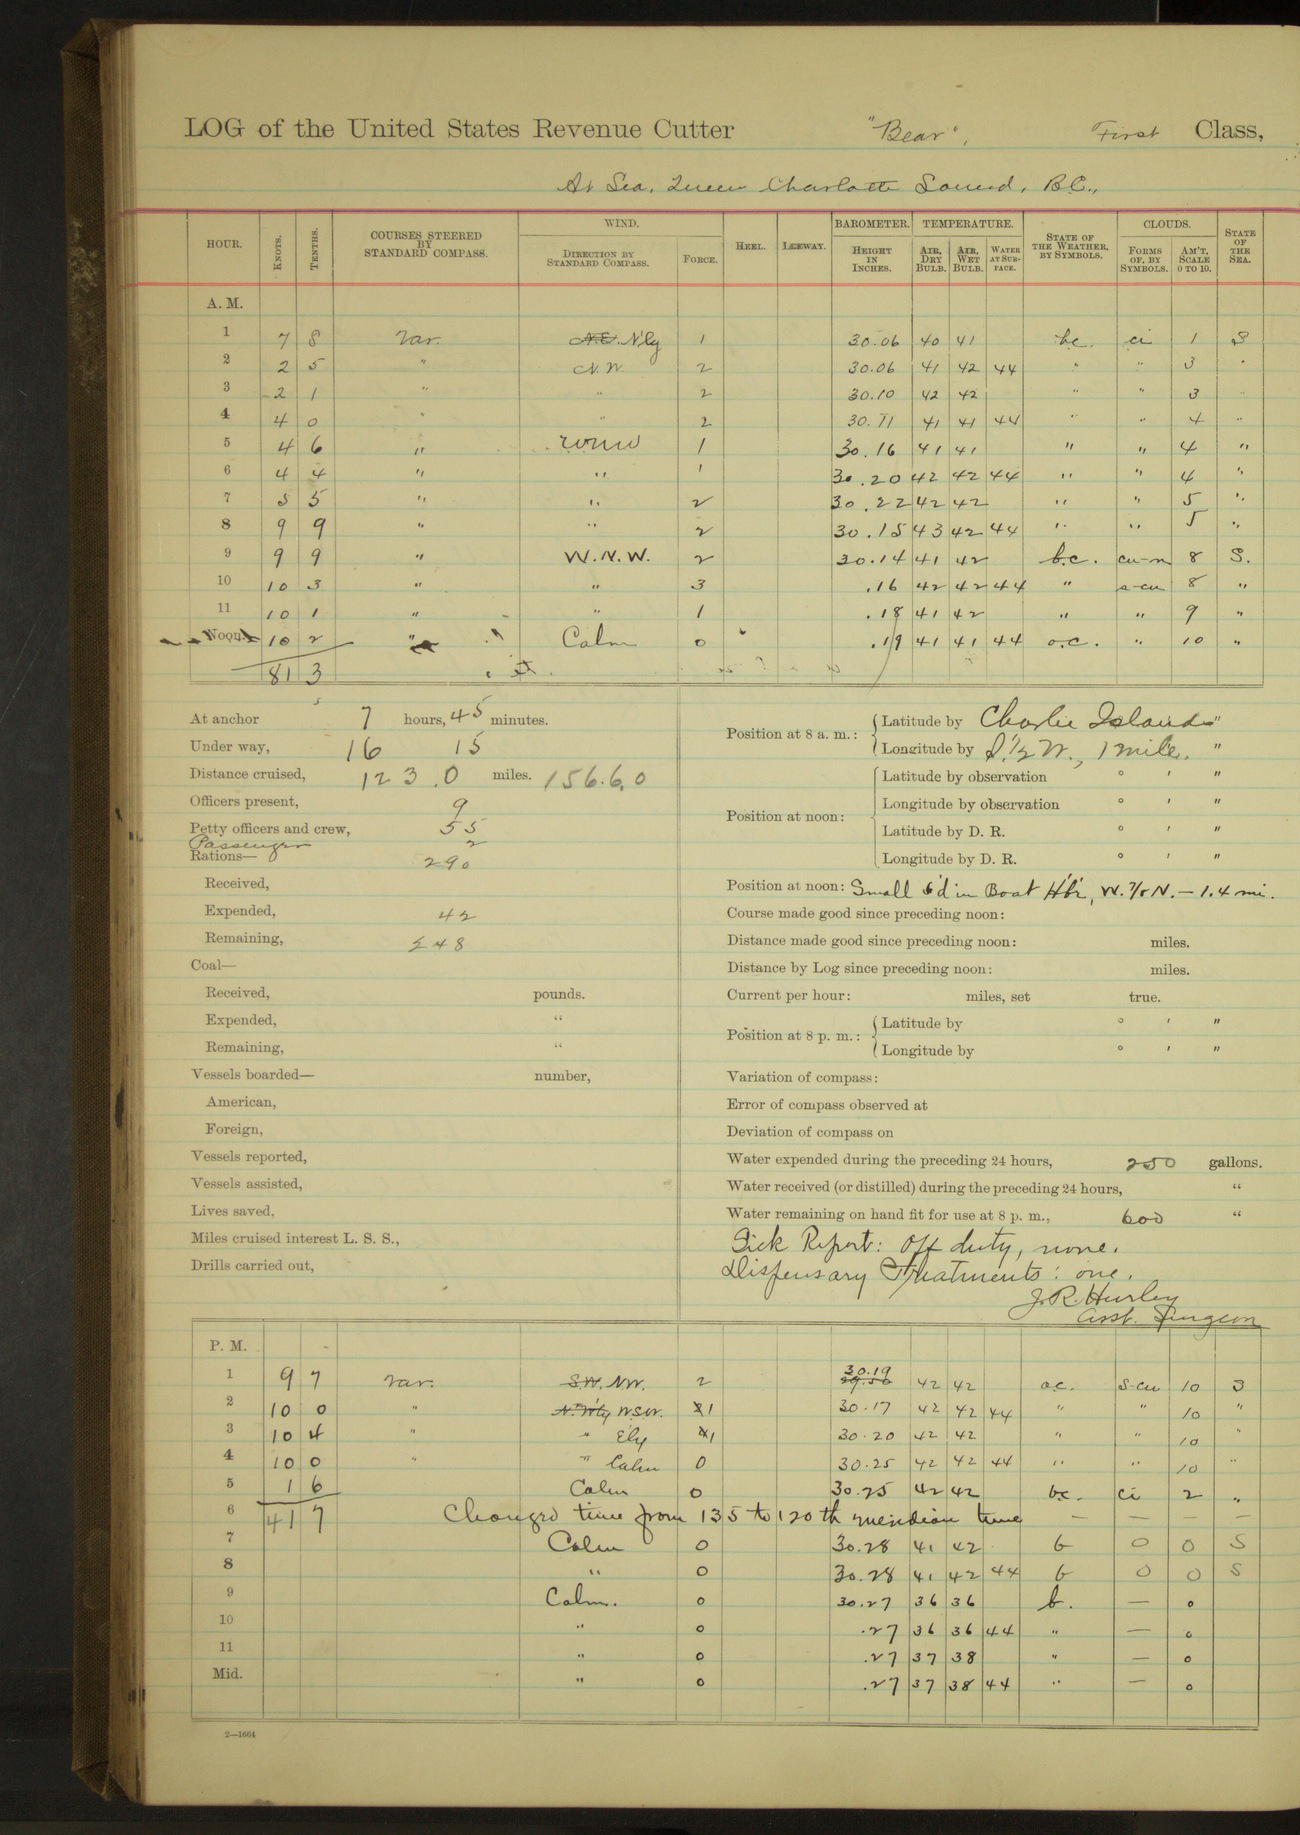 LOG of the United States Revenue Cutter "Bear", First Class,
At Sea, Queen Charlotte Sound, B.C.,
HOUR. KNOTS. TENTHS. COURSES STEERED BY STANDARD COMPASS. WIND. DIRECTION BY STANDARD COMPASS. FORCE. HEEL. LEEWAY. BAROMETER. HEIGHT IN INCHES. TEMPERATURE. AIR, DRY BULB. AIR, WET BULB. WATER AT SURFACE. STATE OF THE WEATHER, BY SYMBOLS. CLOUDS. FORMS OF, BY SYMBOLS. AM'T, SCALE 0 TO 10. STATE OF THE SEA.
A. M.
1 7 8 Var. N.E. N'ly 1 30.06 40 41 bc. ci 1 S
2 2 5 " N.W. 2 30.06 41 42 44 " " 3 "
3 2 1 " " 2 30.10 42 42 " " 3 "
4 4 0 " " 2 30.11 41 41 44 " " 4 "
5 4 6 " WNW 1 30.16 41 41 " " 4 "
6 4 4 " " 1 30.20 42 42 44 " " 4 "
7 5 5 " " 2 30.22 42 42 " " 5 "
8 9 9 " " 2 30.15 43 42 44 " " 5 "
9 9 9 " W.N.W. 2 30.14 41 42 b.c. cu-n 8 S.
10 10 3 " " 3 .16 42 42 44 " s-cu 8 "
11 10 1 " " 1 .18 41 42 " " 9 "
Noon. 10 2 " Calm 0 .19 41 41 44 o.c. " 10 "
81 3
At anchor 7 hours, 45 minutes.
Under way, 16 15
Distance cruised, 123.0 miles. 156.6.0
Officers present, 9
Petty officers and crew, 55
Passenger 2
Rations— 290
Received,
Expended, 42
Remaining, 248
Coal—
Received, pounds.
Expended, "
Remaining, "
Vessels boarded— number,
American,
Foreign,
Vessels reported,
Vessels assisted,
Lives saved,
Miles cruised interest L. S. S.,
Drills carried out,
Position at 8 a. m.: Latitude by Charlie Islands "
Longitude by S.½W., 1 mile. "
Position at noon: Latitude by observation ° ' "
Longitude by observation ° ' "
Latitude by D. R. ° ' "
Longitude by D. R. ° ' "
Position at noon: Small in Boat H'b'r, W. N. — 1.4 mi.
Course made good since preceding noon:
Distance made good since preceding noon: miles.
Distance by Log since preceding noon: miles.
Current per hour: miles, set true.
Position at 8 p. m.: Latitude by ° ' "
Longitude by ° ' "
Variation of compass:
Error of compass observed at
Deviation of compass on
Water expended during the preceding 24 hours, 250 gallons.
Water received (or distilled) during the preceding 24 hours, "
Water remaining on hand fit for use at 8 p. m., 600 "
Sick Report: Off duty, none.
Dispensary Treatments: one.
J.R. Hurley
Asst. Surgeon
P. M.
1 9 7 Var. S.W. NW. 2 30.19 29.50 42 42 o.c. s-cu 10 S
2 10 0 " N.W'ly W.S.W. 1 30.17 42 42 44 " " 10 "
3 10 4 " " E'ly 1 30.20 42 42 " " 10 "
4 10 0 " " Calm 0 30.25 42 42 44 " " 10 "
5 1 6 Calm 0 30.25 42 42 bc. ci 2 "
6 41 7 Changed time from 135 to 120th meridian time — — — —
7 Calm 0 30.28 41 42 b 0 0 S
8 " 0 30.28 41 42 44 b 0 0 S
9 Calm. 0 30.27 36 36 b. — 0
10 " 0 .27 36 36 44 " — 0
11 " 0 .27 37 38 " — 0
Mid. " 0 .27 37 38 44 " — 0
2—1664